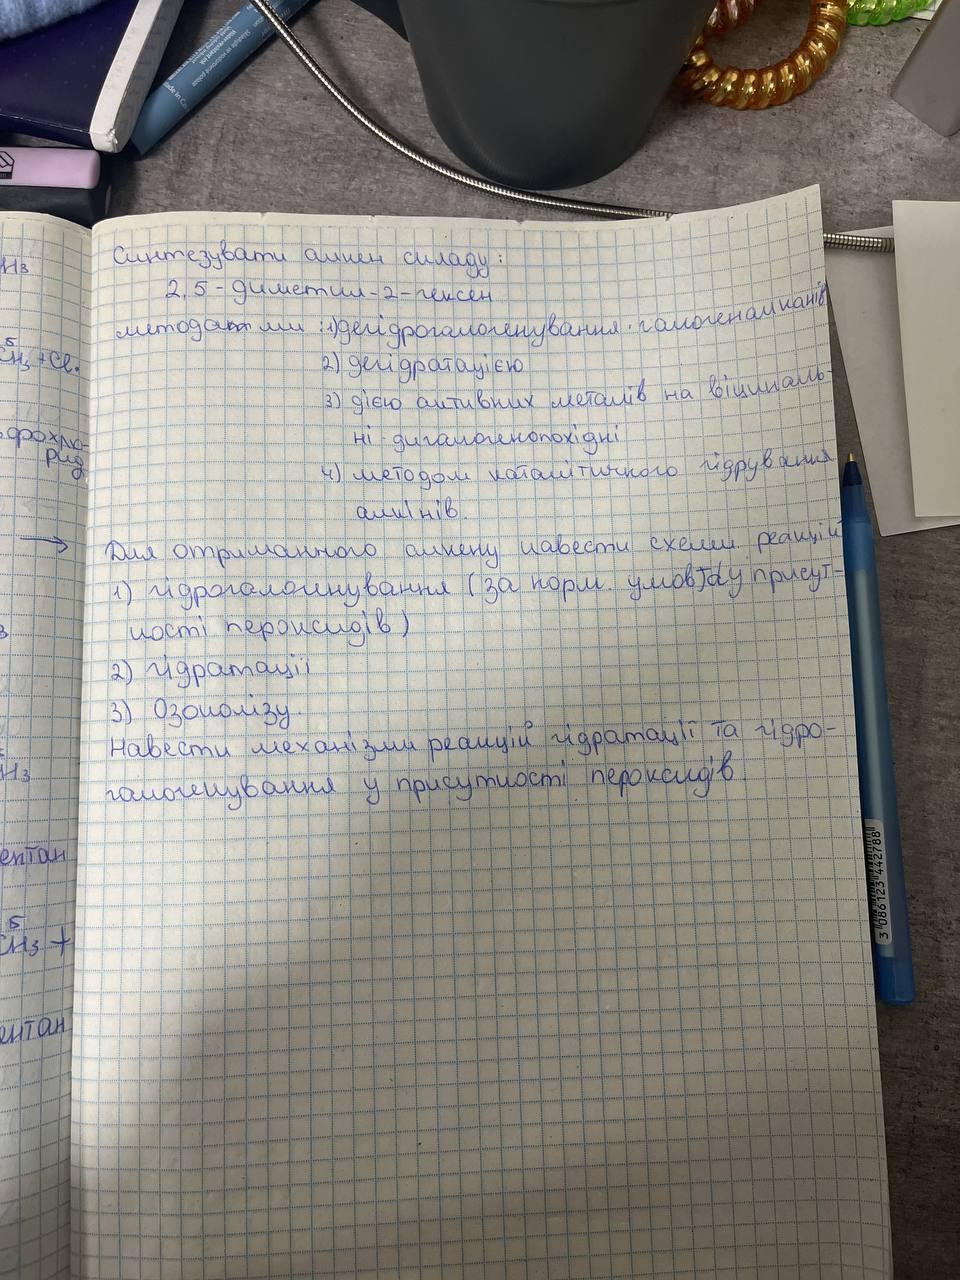 Синтезувати алкен складу:
2,5-диметил-2-гексен
методами: 1) дегідрогалогенування галогеналканів
2) дегідратацією
3) дією активних металів на віциналь-
ні дигалогенопохідні
4) методом каталітичного гідрування
алкінів.
Для отриманного алкену навести схеми реакцій
1) гідрогалогенування (за норм. умов) у присут-
ності пероксидів)
2) гідратації
3) Озонолізу.
Навести механізми реакцій гідратації та гідро-
галогенування у присутності пероксидів
H3
5
CH3 + Cl.
фрохло-
рид
→
H3
ентан
5
CH3 +
ентан
3 086123 442788